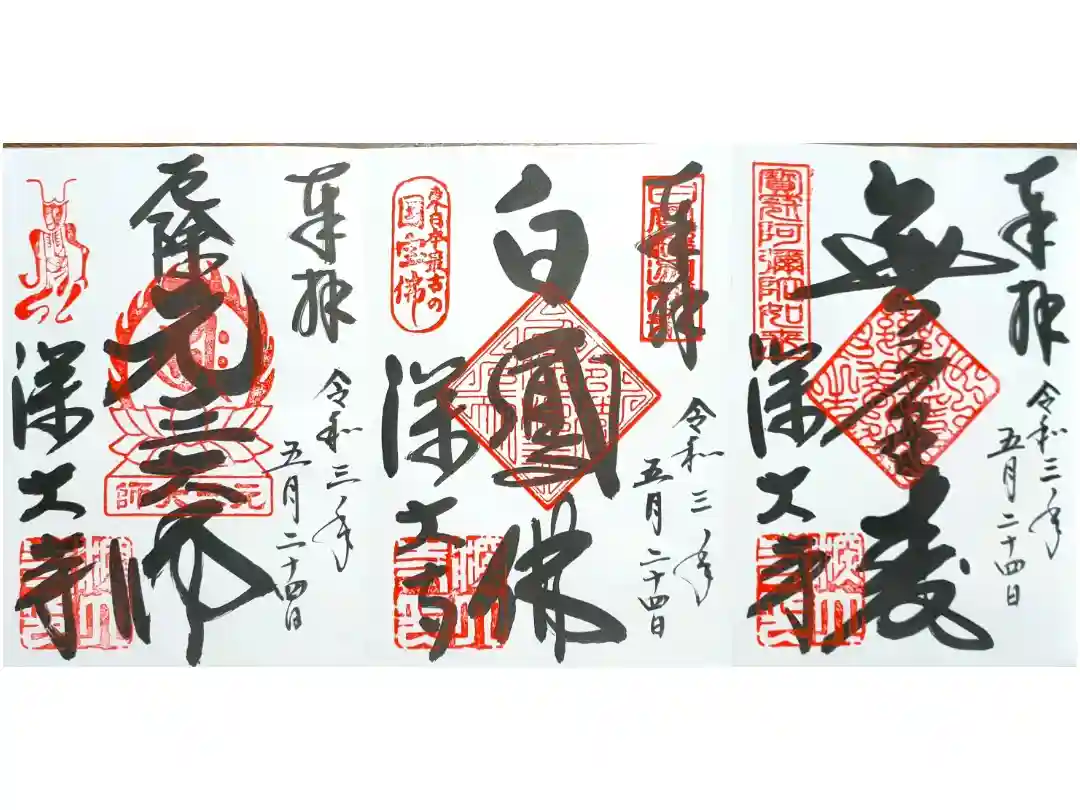 奉拝
令和三年
五月二十四日
無量壽
寶冠阿彌陀如来
深大寺
奉拝
令和三年
五月二十四日
白鳳佛
東日本最古の
国宝佛
深大寺
奉拝
令和三年
五月二十四日
厄除元三大師
元三大師
深大寺